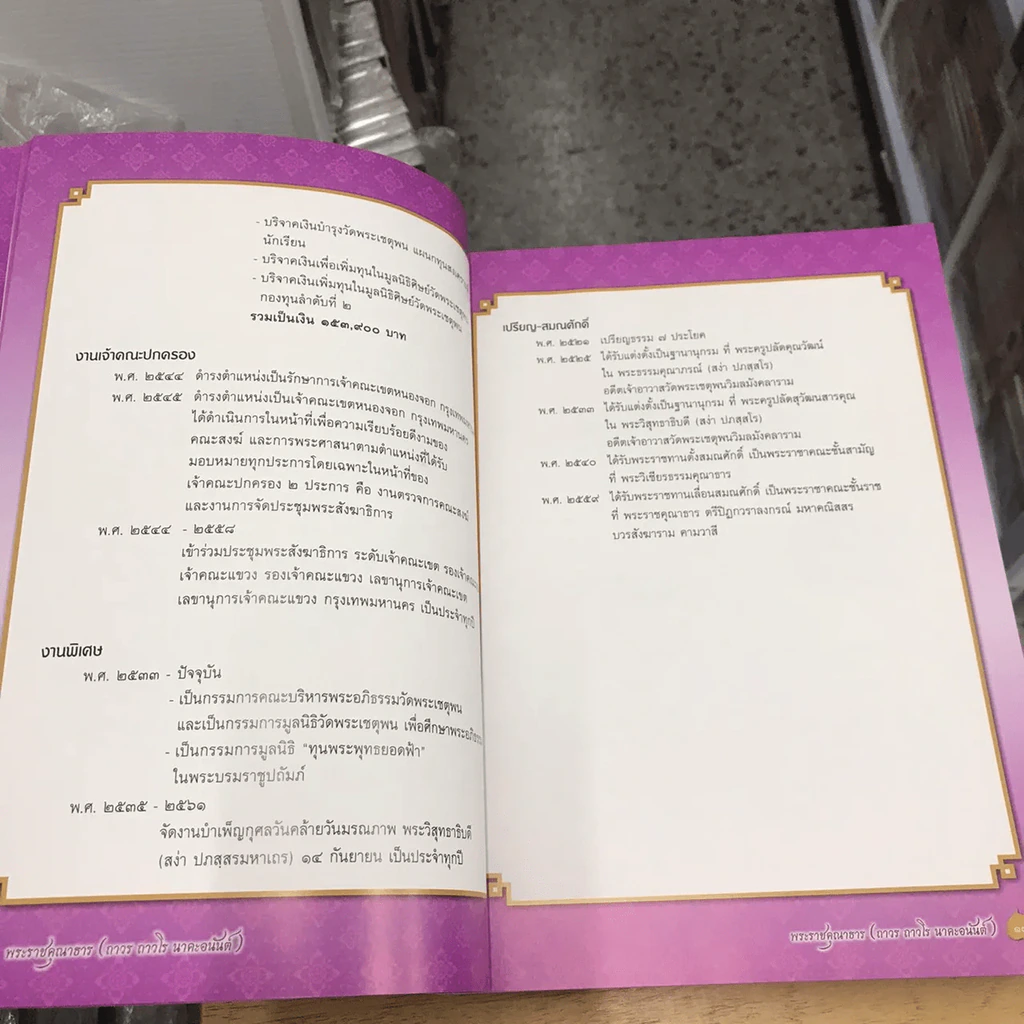 - บริจาคเงินบำรุงวัดพระเชตุพน แผนกทุนสงเคราะห์
นักเรียน
- บริจาคเงินเพื่อเพิ่มทุนในมูลนิธิศิษย์วัดพระเชตุพน
- บริจาคเงินเพิ่มทุนในมูลนิธิศิษย์วัดพระเชตุพน
กองทุนลำดับที่ ๒
รวมเป็นเงิน ๑๕๓,๙๐๐ บาท
งานเจ้าคณะปกครอง
พ.ศ. ๒๕๔๔ ดำรงตำแหน่งเป็นรักษาการเจ้าคณะเขตหนองจอก กรุงเทพมหานคร
พ.ศ. ๒๕๔๕ ดำรงตำแหน่งเป็นเจ้าคณะเขตหนองจอก กรุงเทพมหานคร
ได้ดำเนินการในหน้าที่เพื่อความเรียบร้อยดีงามของ
คณะสงฆ์ และการพระศาสนาตามตำแหน่งที่ได้รับ
มอบหมายทุกประการโดยเฉพาะในหน้าที่ของ
เจ้าคณะปกครอง ๒ ประการ คือ งานตรวจการคณะสงฆ์
และงานการจัดประชุมพระสังฆาธิการ
พ.ศ. ๒๕๔๔ - ๒๕๕๘
เข้าร่วมประชุมพระสังฆาธิการ ระดับเจ้าคณะเขต รองเจ้าคณะเขต
เจ้าคณะแขวง รองเจ้าคณะแขวง เลขานุการเจ้าคณะเขต
เลขานุการเจ้าคณะแขวง กรุงเทพมหานคร เป็นประจำทุกปี
งานพิเศษ
พ.ศ. ๒๕๓๓ - ปัจจุบัน
- เป็นกรรมการคณะบริหารพระอภิธรรมวัดพระเชตุพน
และเป็นกรรมการมูลนิธิวัดพระเชตุพน เพื่อศึกษาพระอภิธรรม
- เป็นกรรมการมูลนิธิ "ทุนพระพุทธยอดฟ้า"
ในพระบรมราชูปถัมภ์
พ.ศ. ๒๕๓๕ - ๒๕๖๑
จัดงานบำเพ็ญกุศลวันคล้ายวันมรณภาพ พระวิสุทธาธิบดี
(สง่า ปภสฺสรมหาเถร) ๑๔ กันยายน เป็นประจำทุกปี
พระราชคุณาธาร (ถาวร ถาวโร นาคะอนันต์)
เปรียญ-สมณศักดิ์
พ.ศ. ๒๕๒๑ เปรียญธรรม ๗ ประโยค
พ.ศ. ๒๕๒๕ ได้รับแต่งตั้งเป็นฐานานุกรม ที่ พระครูปลัดคุณวัฒน์
ใน พระธรรมคุณาภรณ์ (สง่า ปภสฺสโร)
อดีตเจ้าอาวาสวัดพระเชตุพนวิมลมังคลาราม
พ.ศ. ๒๕๓๓ ได้รับแต่งตั้งเป็นฐานานุกรม ที่ พระครูปลัดสุวัฒนสารคุณ
ใน พระวิสุทธาธิบดี (สง่า ปภสฺสโร)
อดีตเจ้าอาวาสวัดพระเชตุพนวิมลมังคลาราม
พ.ศ. ๒๕๔๐ ได้รับพระราชทานตั้งสมณศักดิ์ เป็นพระราชาคณะชั้นสามัญ
ที่ พระวิเชียรธรรมคุณาธาร
พ.ศ. ๒๕๕๙ ได้รับพระราชทานเลื่อนสมณศักดิ์ เป็นพระราชาคณะชั้นราช
ที่ พระราชคุณาธาร ตรีปิฎกวราลงกรณ์ มหาคณิสสร
บวรสังฆาราม คามวาสี
พระราชคุณาธาร (ถาวร ถาวโร นาคะอนันต์)